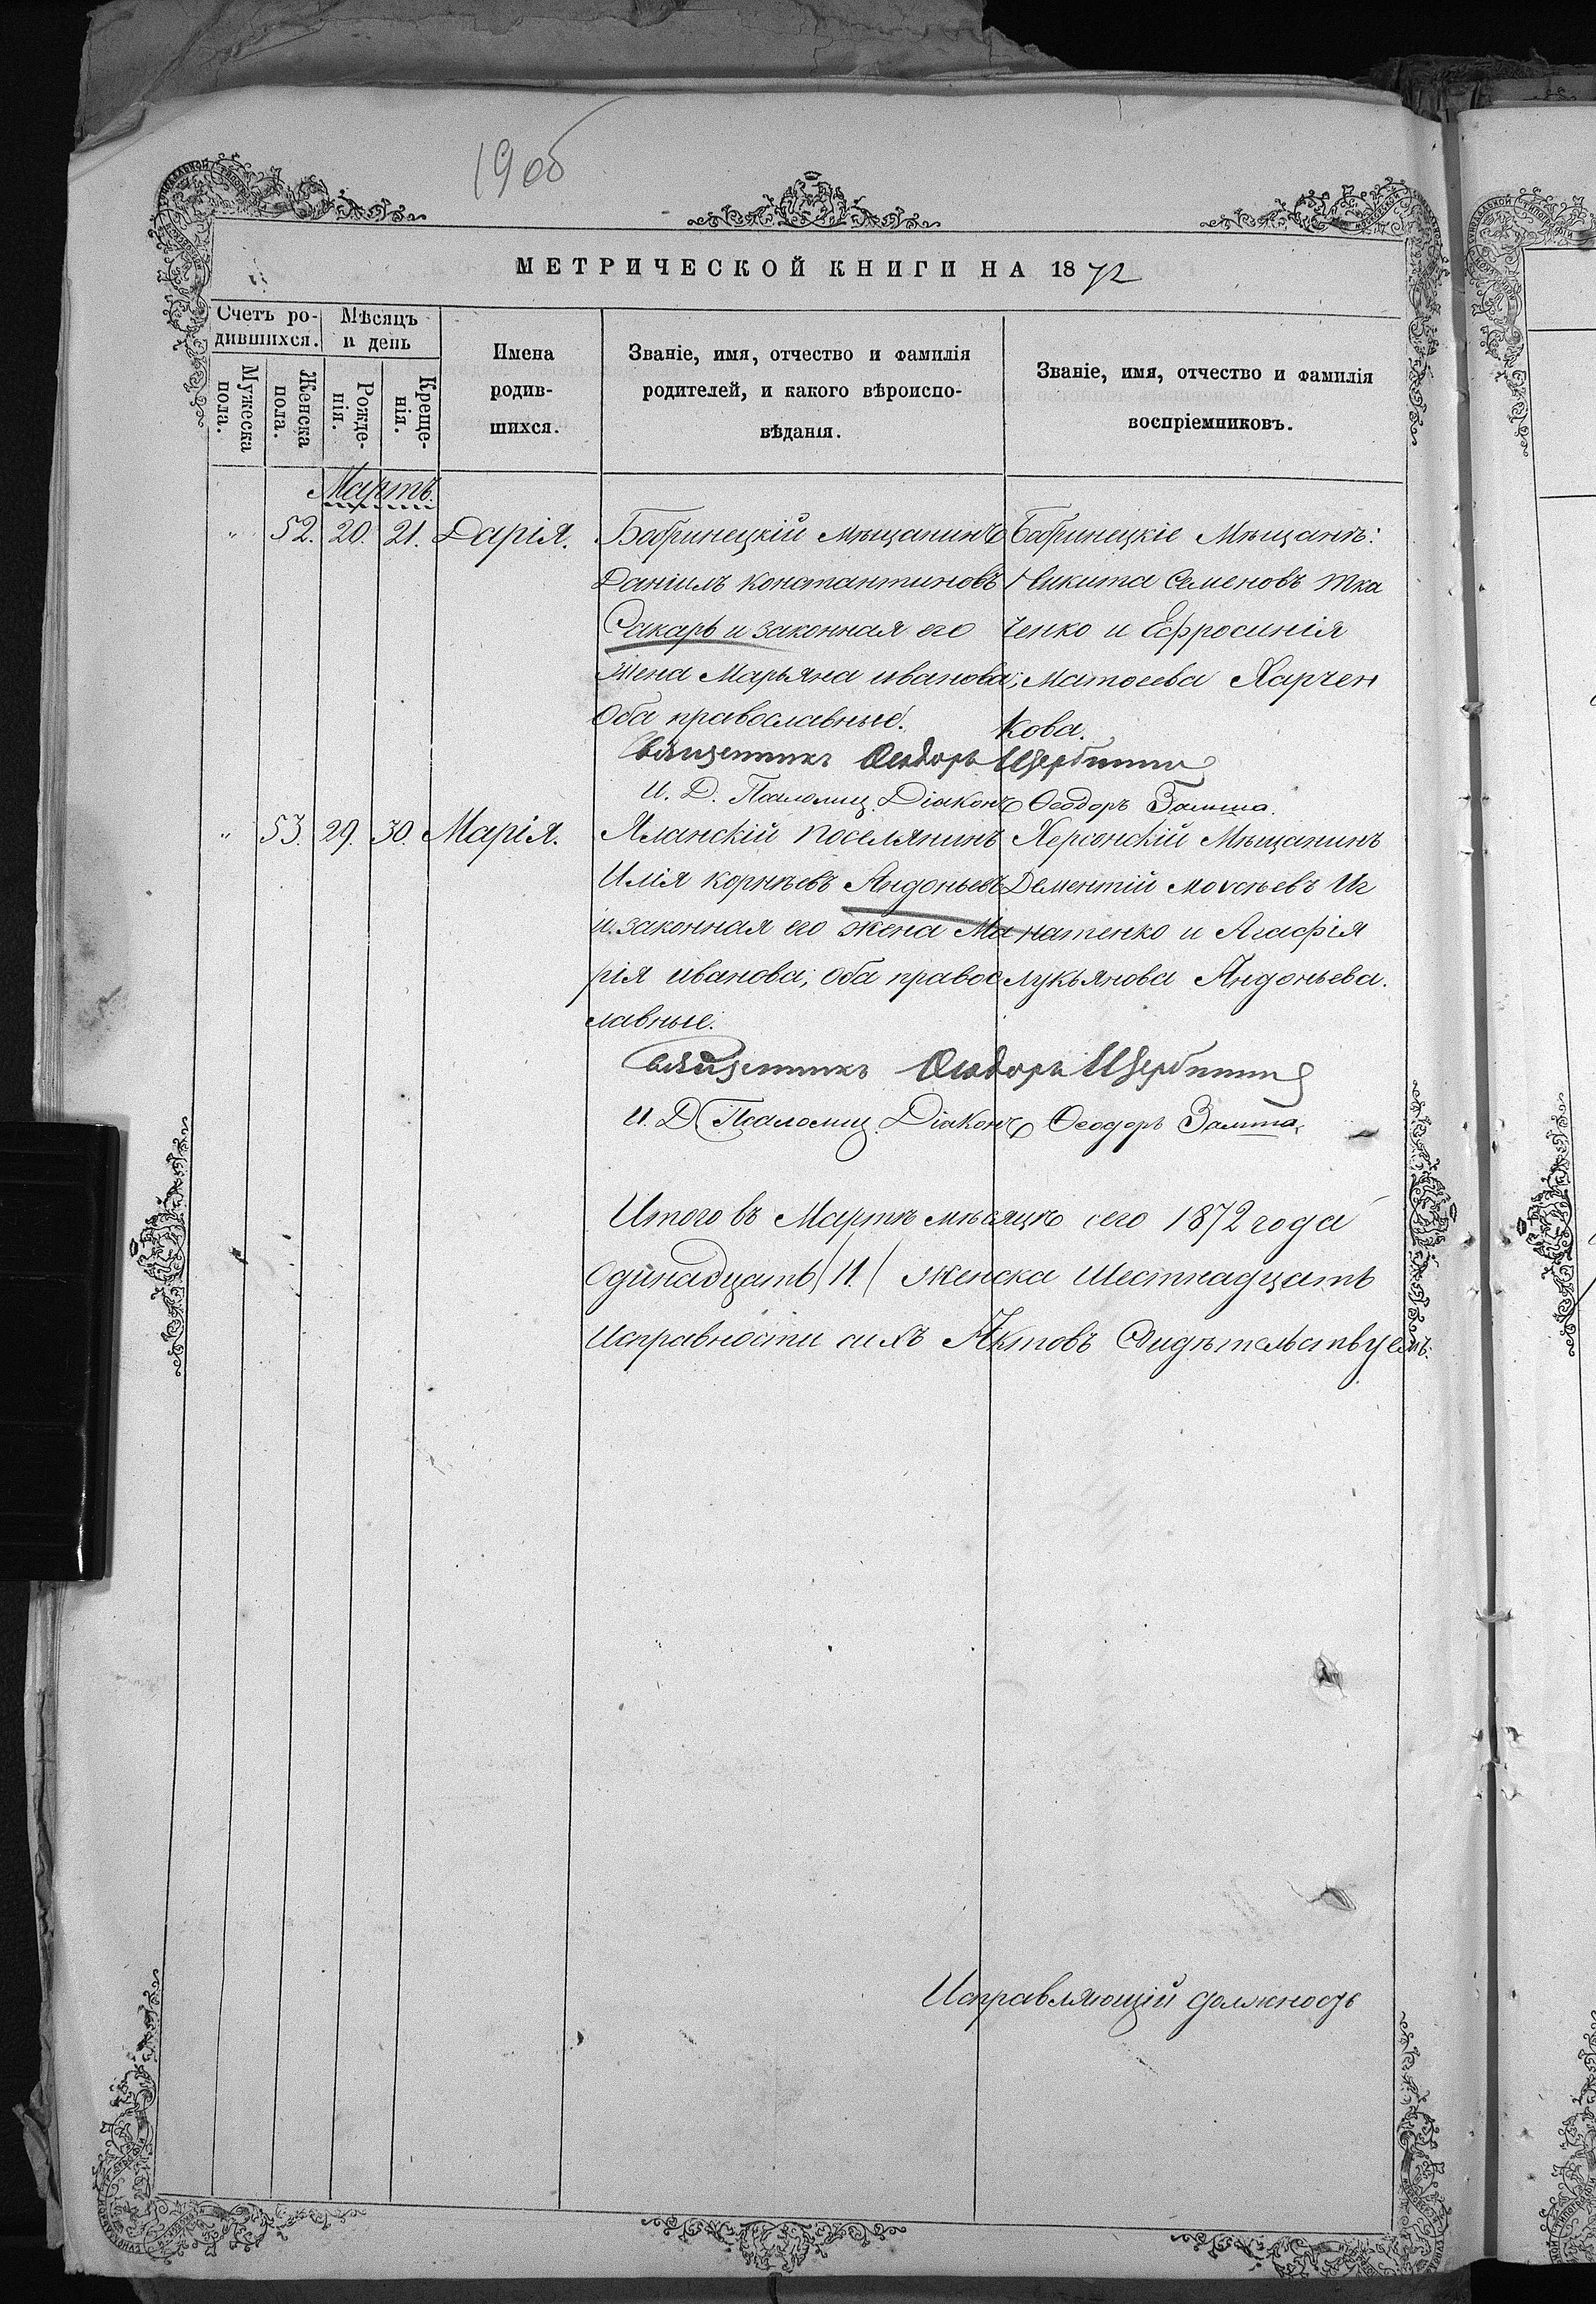 190б
МЕТРИЧЕСКОЙ КНИГИ НА 1872
Счетъ ро-
дившихся.
Мѣсяцъ
и день
Мужеска
пола.
Женска
пола.
Рожде-
нія.
Креще-
нія.
Имена
родив-
шихся.
Званіе, имя, отчество и фамилія
родителей, и какого вѣроиспо-
вѣданія.
Званіе, имя, отчество и фамилія
воспріемниковъ.
Мартъ.
" 52. 20. 21. Дарія.
Бобринецкій Мѣщанинъ
Даніилъ Константиновъ
Сакаръ и законная его
жена Марьяна иванова;
Оба православные.
Бобринецкіе Мѣщане:
Никита Семеновъ Тка
ченко и Ефросинія
Матѳеева Харчен
кова.
Священникъ Ѳеодоръ
И. Д. Псаломщ. Діаконъ Ѳеодоръ
" 53. 29. 30. Марія.
Яланскій поселянинъ
Илія Корнѣевъ Андоньевъ
и законная его жена Ма
рія иванова; Оба правос
лавные.
Херсонскій Мѣщанинъ
Дементій Моѵсѣевъ Иг
натенко и Агафія
Лукьянова Андоньева.
Священникъ Ѳеодоръ
И. Д. Псаломщ. Діаконъ Ѳеодоръ
Итого въ Мартѣ мѣсяцѣ сего 1872 года
Одинадцать (11.) женска Шестнадцать
Исправности сихъ Актовъ Свидѣтельствуемъ:
Исправляющій должность